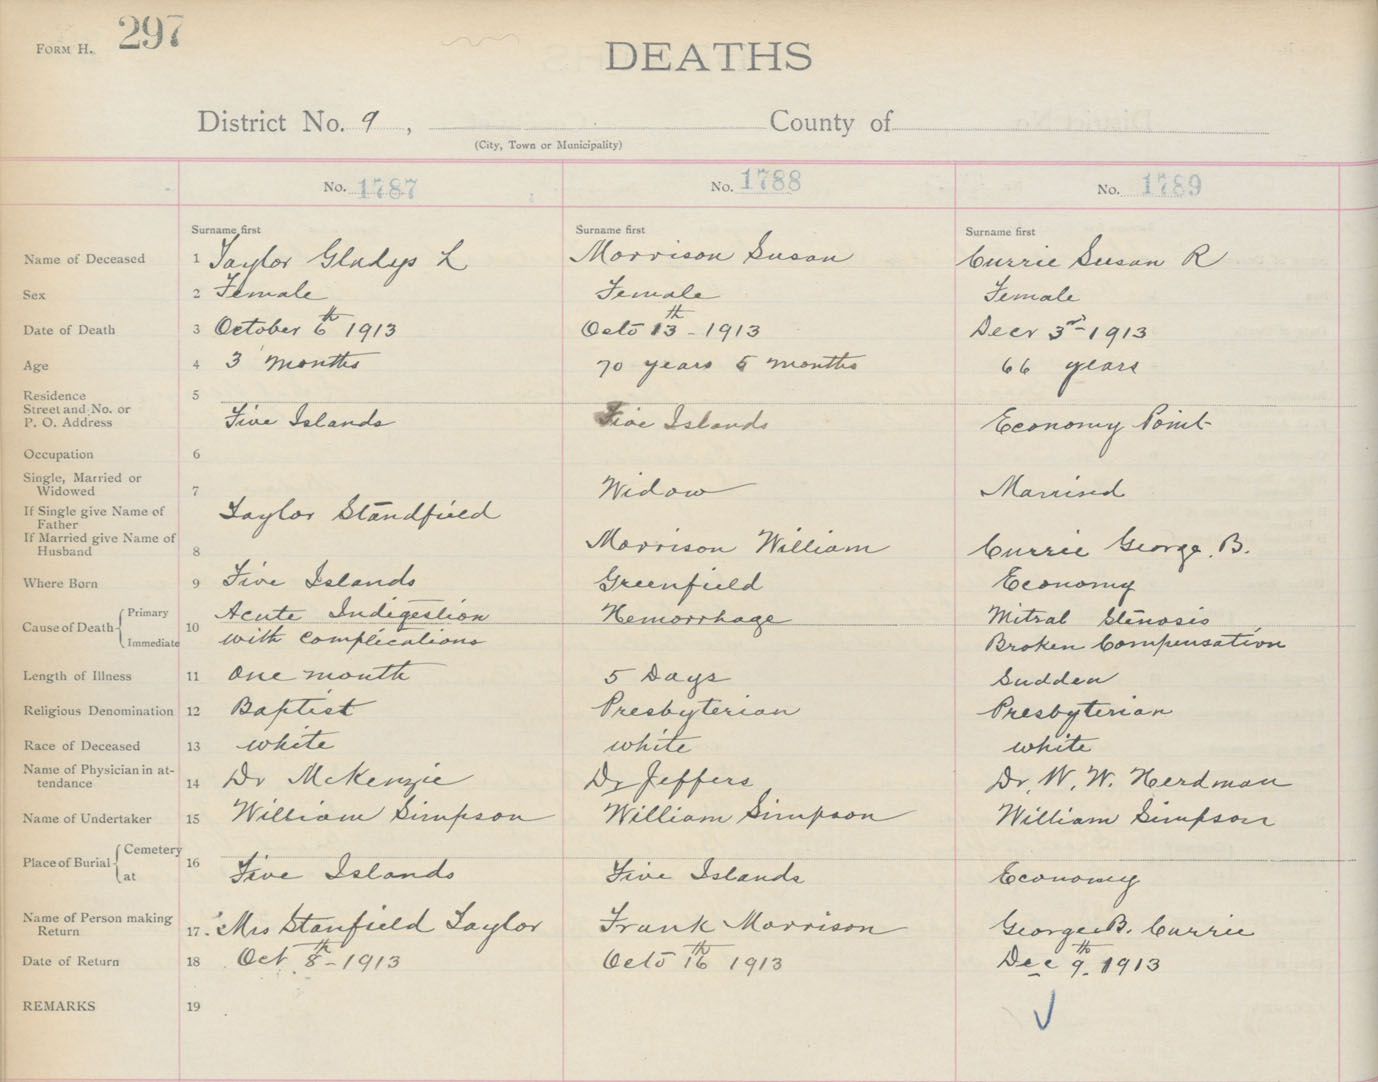 FORM H. 297
DEATHS
District No. 9, County of
(City, Town or Municipality)
No. 1787 No. 1788 No. 1789
Surname first Surname first Surname first
Name of Deceased 1 Taylor Gladys L Morrison Susan Currie Susan R
Sex 2 Female Female Female
Date of Death 3 October 6th 1913 Octo 13th - 1913 Decr 3rd - 1913
Age 4 3 months 70 years 5 months 66 years
Residence 5
Street and No. or
P. O. Address Five Islands Five Islands Economy Point
Occupation 6
Single, Married or
Widowed 7 Widow Married
If Single give Name of
Father Taylor Standfield
If Married give Name of
Husband 8 Morrison William Currie George. B.
Where Born 9 Five Islands Greenfield Economy
Cause of Death Primary 10 Acute Indigestion Hemorrhage Mitral Stenosis
Immediate with complications Broken Compensation
Length of Illness 11 One month 5 Days Sudden
Religious Denomination 12 Baptist Presbyterian Presbyterian
Race of Deceased 13 white white white
Name of Physician in at-
tendance 14 Dr McKenzie Dr Jeffers Dr. W. W. Herdman
Name of Undertaker 15 William Simpson William Simpson William Simpson
Place of Burial Cemetery 16
at Five Islands Five Islands Economy
Name of Person making
Return 17 Mrs Stanfield Taylor Frank Morrison George B. Currie
Date of Return 18 Oct 8th - 1913 Octo 16th 1913 Dec 9th. 1913
REMARKS 19